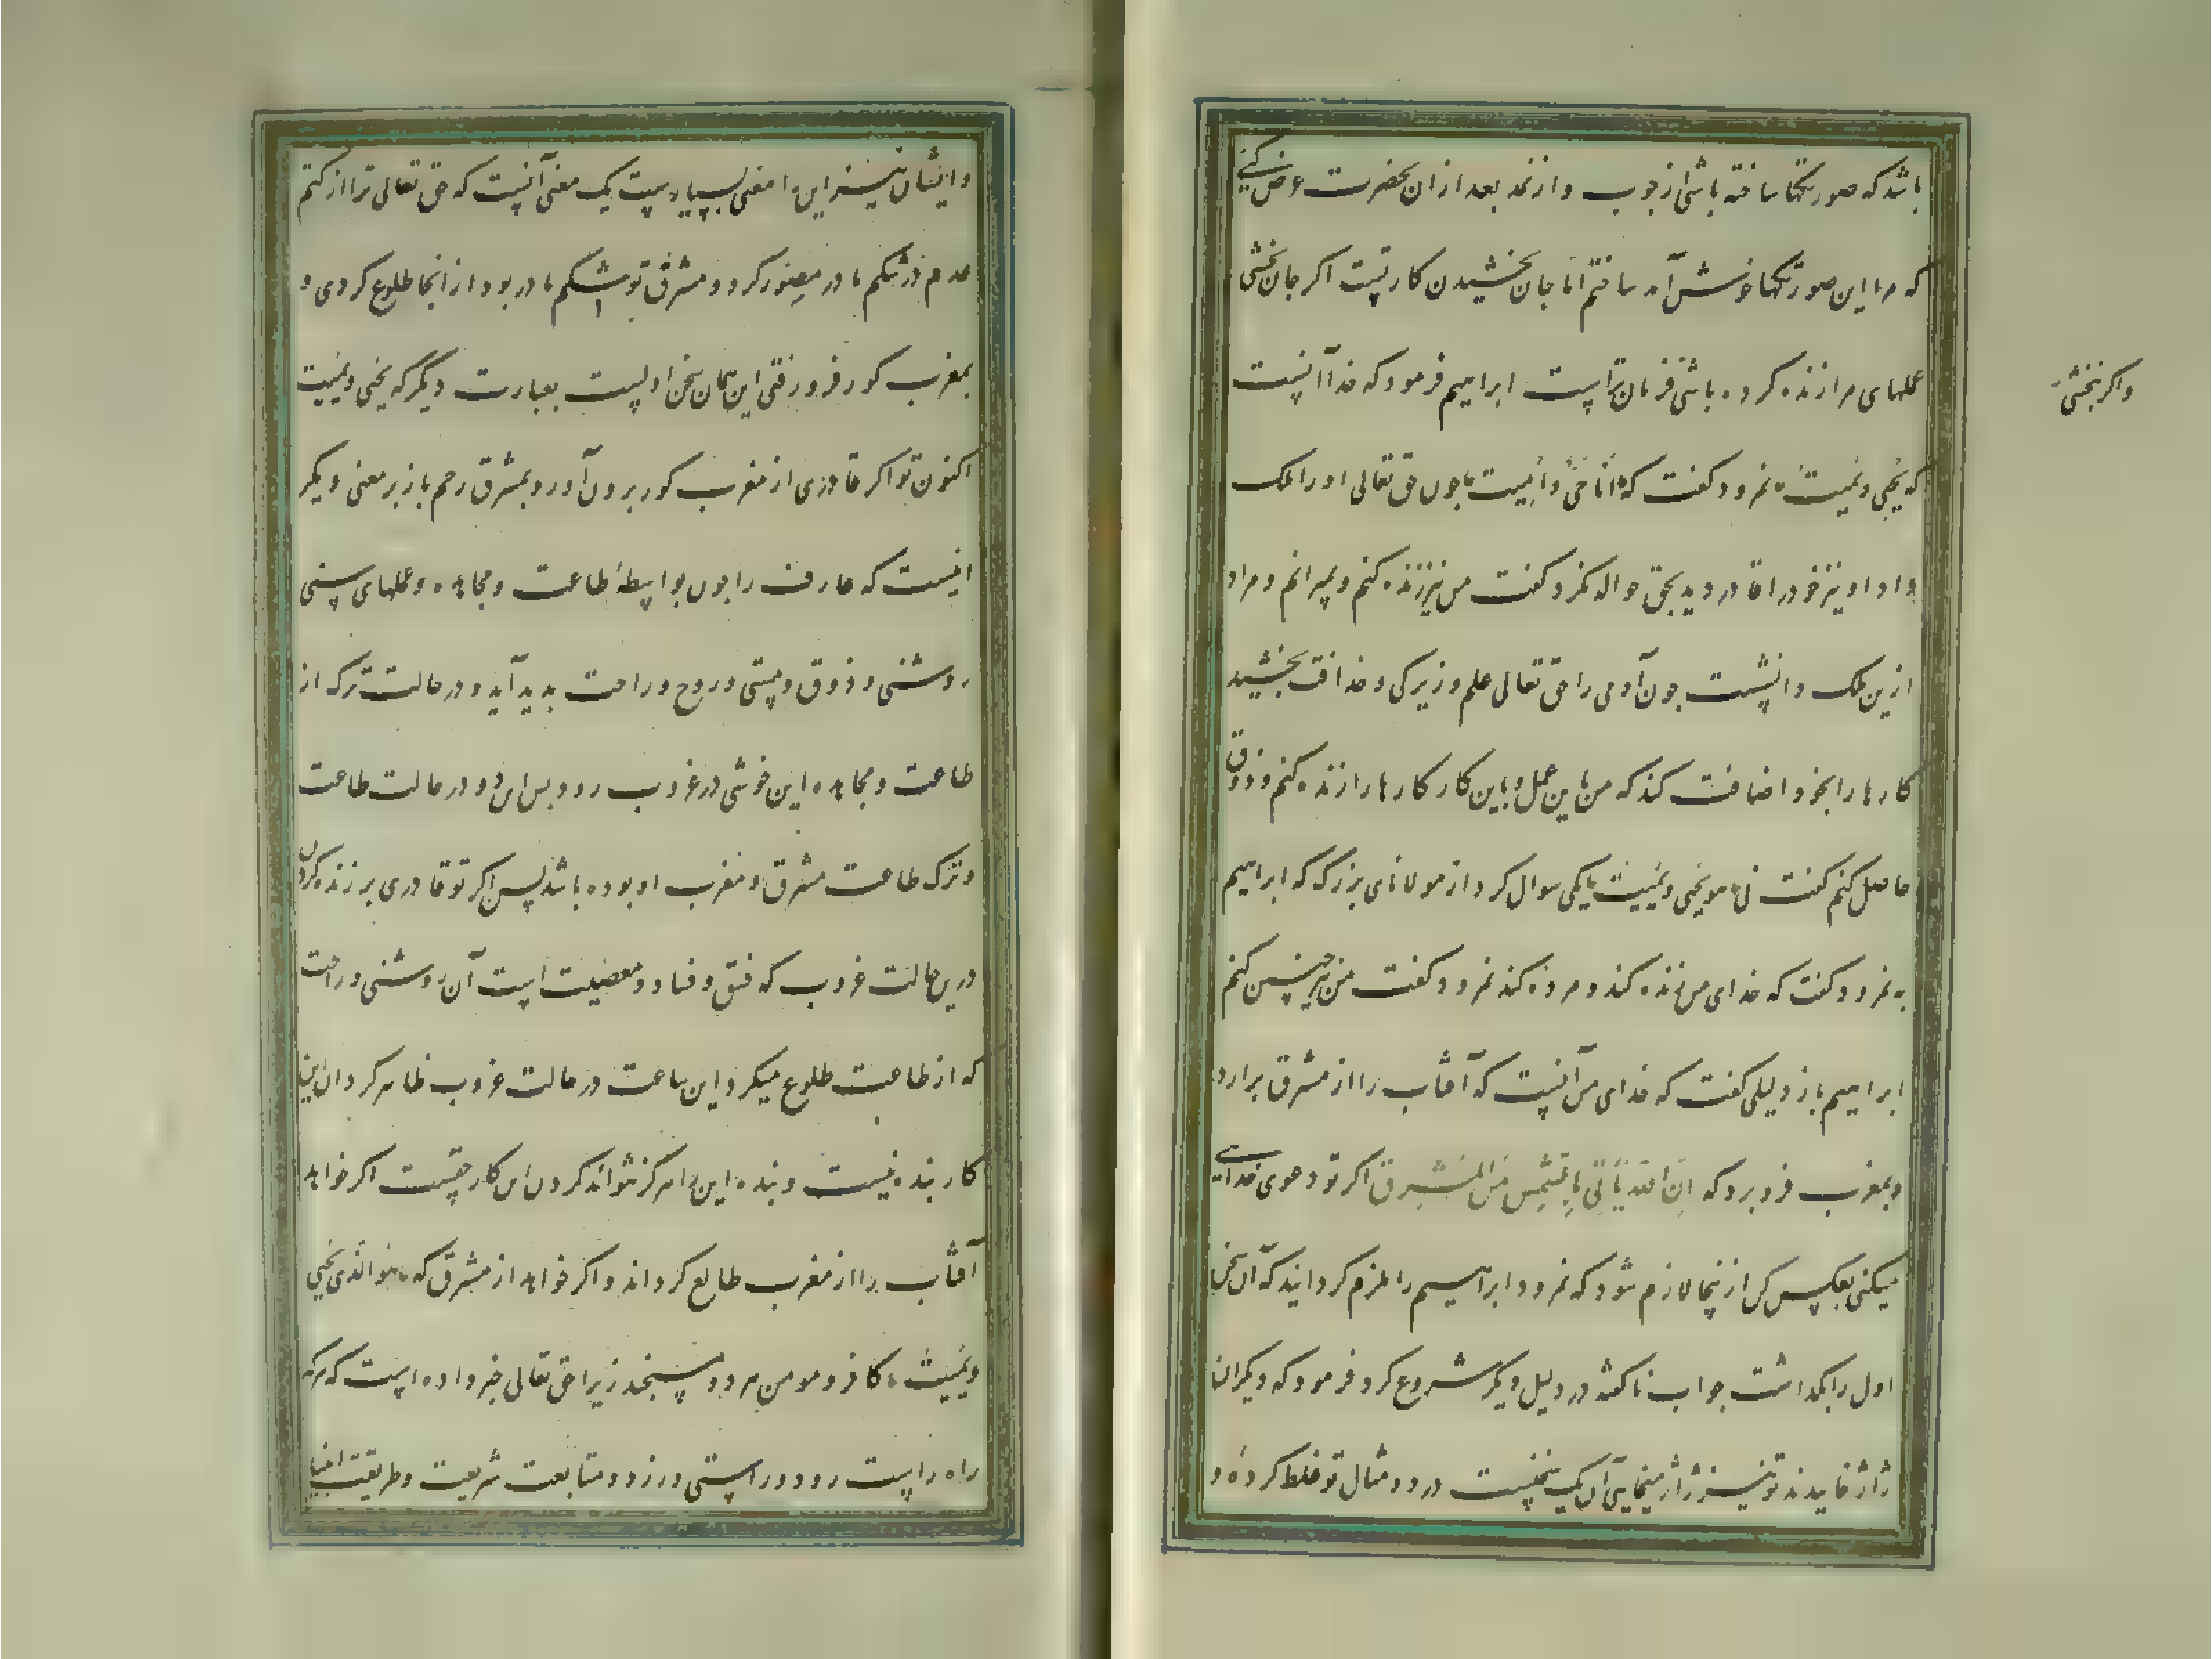 باشد که صورتکها ساخته باشی از چوب و از نمد بعد از ان بحضرت عرض کنی
که مرا این صورتکها خوش آمد ساختم اما جان بخشیدن کار تست اکر جان بخشی
عملهای مرا زنده کرده باشی فرمان تراست ابراهیم فرمود که خدا آنست
واکر نبخشی
که یُحیی ویُمیتُ نمرود کفت که اَنَا اُحْیِ واُمِیت چون حق تعالی او را ملک
داد او نیز خود را قادر دید بحق حواله نکرد کفت من نیز زنده کنم و بمیرانم و مراد
ازین ملک دانشست چون آدمی را حق تعالی علم و زیرکی و حذاقت بخشید
کارها را بخود اضافت کند که من باین عمل و باین کار کارها را زنده کنم و ذوق
حاصل کنم کفت نی هو یُحیی ویُمیت یکی سوال کرد از مولانای بزرک که ابراهیم
به نمرود کفت که خدای من زنده کند و مرده کند نمرود کفت من نیز چنین کنم
ابراهیم باز دلیلی کفت که خدای من آنست که آفتاب را از مشرق برارد
وبمغرب فرو برد که اِنَّ اللّٰه یَأتی بِالشَّمسِ مِنَ المَشرِق اکر تو دعوی خدایی
میکنی بعکس کن ازینجا لازم شود که نمرود ابراهیم را ملزم کردانید که آن سخن
اول را بکذاشت جواب ناکفته در دلیل دیکر شروع کرد فرمود که دیکران
ژاژ خاییدند تو نیز ژاژ میخایی آن یک سخنست در دو مثال تو غلط کرده و
وایشان نیز این را معنی بسیارست یک معنی آنست که حق تعالی ترا از کتم
عدم در شکم مادر مصور کرد و مشرق تو شکم مادر بود از انجا طلوع کردی و
بمغرب کور فرو رفتی این همان سخن اولست بعبارت دیکر که یحیی ویمیت
اکنون تو اکر قادری از مغرب کور برون آور و بمشرق رحم باز بر معنی دیکر
اینست که عارف را چون بواسطهٔ طاعت و مجاهده و عملهای سنی
روشنی و ذوق و مستی و روح و راحت بدید آید و در حالت ترک از
طاعت و مجاهده این خوشی در غروب رود پس این دو در حالت طاعت
وترک طاعت مشرق و مغرب او بوده باشد پس اکر تو قادری بر زنده کردن
درین حالت غروب که فسق و فساد و معصیت است آن روشنی و راحت
که از طاعت طلوع میکرد این ساعت در حالت غروب ظاهر کردان این
کار بنده نیست و بنده این را هرکز نتواند کردن این کار حقست اکر خواهد
آفتاب را از مغرب طالع کرداند و اکر خواهد از مشرق که هُوَ الَّذی یُحیی
ویُمیتُ کافر و مومن هر دو مسبحند زیرا حق تعالی خبر داده است که هرکه
راه راست رود و راستی ورزد و متابعت شریعت وطریقت انبیا